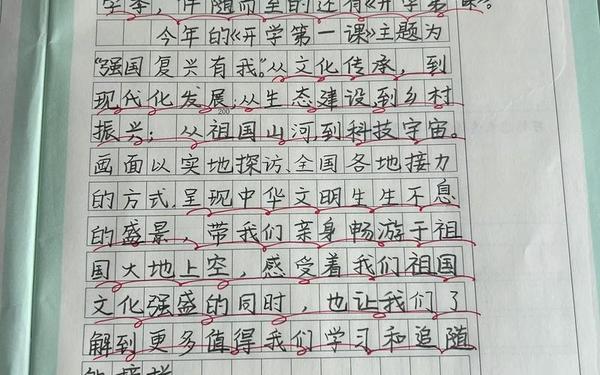 学季，伴随而至的还有《开学第一课》。
今年的《开学第一课》主题为
“强国复兴有我”。从文化传承，到
现代化发展；从生态建设，到乡村
200
振兴；从祖国山河，到科技宇宙。
画面以实地探访、全国各地接力
的方式，呈现中华文明生生不息
的盛景，带我们亲身畅游于祖
国大地上空，感受着我们祖国
文化强盛的同时，也让我们了
解到更多值得我们学习和追随
的榜样